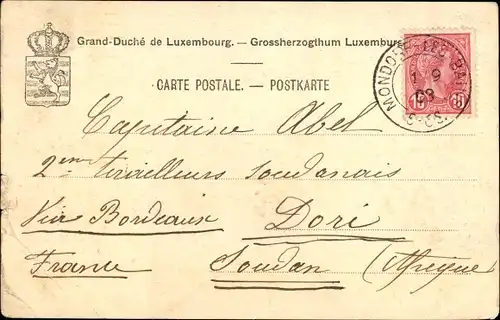 Grand-Duché de Luxembourg. — Grossherzogthum Luxemburg
CARTE POSTALE. — POSTKARTE
MONDORF-LES-BAINS
1 9
03
10
Capitaine Abel
2em tirailleurs soudanais
Via Bordeaux Dori
France Soudan (Afrique)